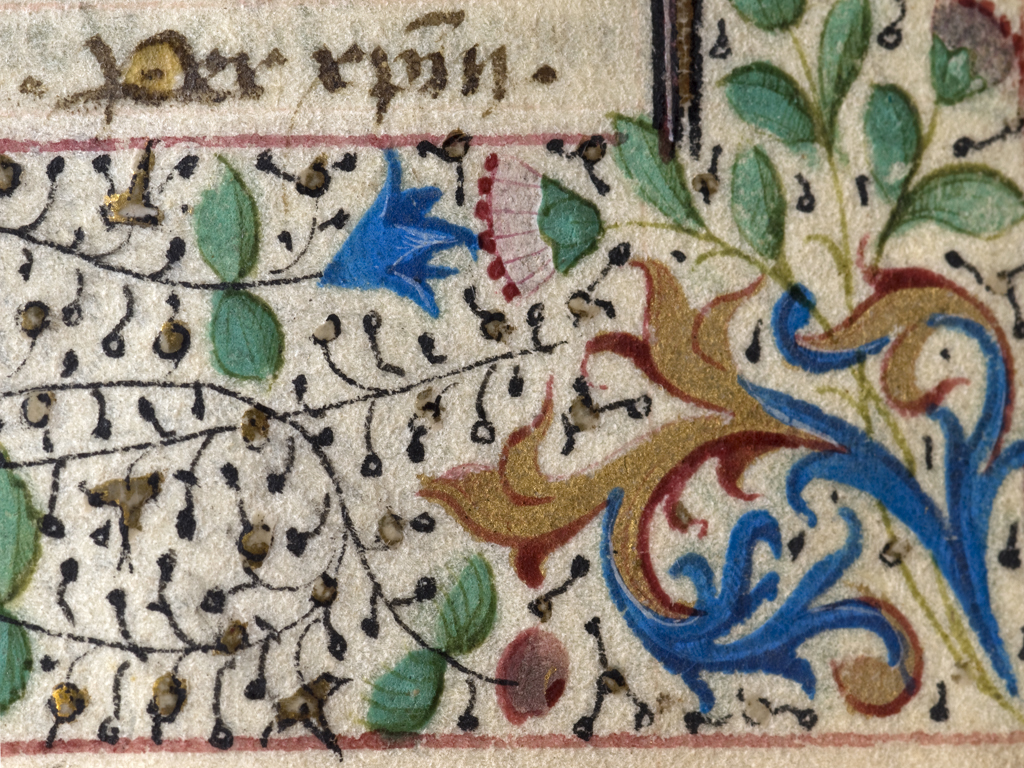 . Per xp̄m .